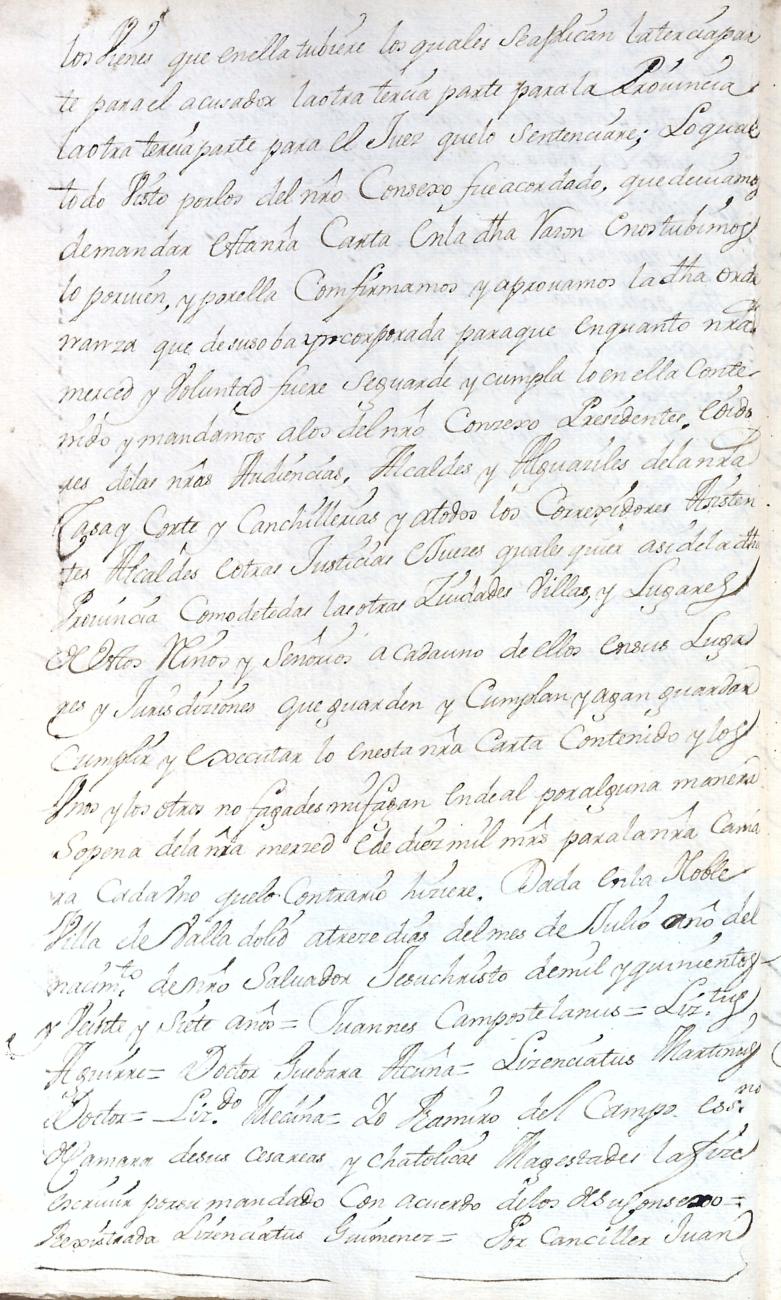 los Vienes que en ella tubiere los quales se aplican la tercia par
te para el acusador la otra tercia parte para la Provincia
la otra tercia parte para el Juez que lo sentenciare; Lo qual
todo Visto por los del nrô Consexo fue acordado, que deviamos
demandar esta nrâ Carta en la dha razon Enos tubimoslo
lo por vien, y por ella Comfirmamos y aprovamos la dha orde
nanza que de suso ba yncorporada para que en quanto nrâ
merced y Voluntad fuere se guarde y cumpla lo en ella Conte
nido y mandamos a los del nrô Consexo Presidentes, Eoido
res de las nrâs Audiencias, Alcaldes y Alguaziles de la nrâ
Casa y Corte y Canchillerias y a todos los Correxidores Asisten
tes Alcaldes e otras Justicias e Juezes quales quier asi de la dha
Provincia Como de todas las otras Ziudades Villas, y Lugares
de estos Reinos y Señorios a cada uno de ellos en sus Luga
res y Jurisdiziones que guarden y Cumplan y agan guardar
Cumplir y Executar lo en esta nrâ Carta Contenido y los
Unos y los otros no fagades ni fagan ende al por alguna manera
so pena de la nrâ merzed E de diez mil mrs para la nrâ Cama
ra Cada Uno que lo Contrario hiziere. Dada en la Noble
Villa de Valladolid a treze dias del mes de Jullio año del
nacim.to de nrô Salvador Jesuchristo de mil y quinientos
y Veinte y Siete años= Juannes Campostelanus= Liz.tus
Aguirre= Doctor Guebara Acuña= Lizenciatus Martinus
Doctor= Liz.do Medina= Yo Ramiro del Campo ess.no
de Camara de sus cesareas y chatolicas Magestades la fize
escrivir por su mandado Con acuerdo de los de su Consexo=
Rexistrada Lizenciatus Guimenez= Por Canciller Juan